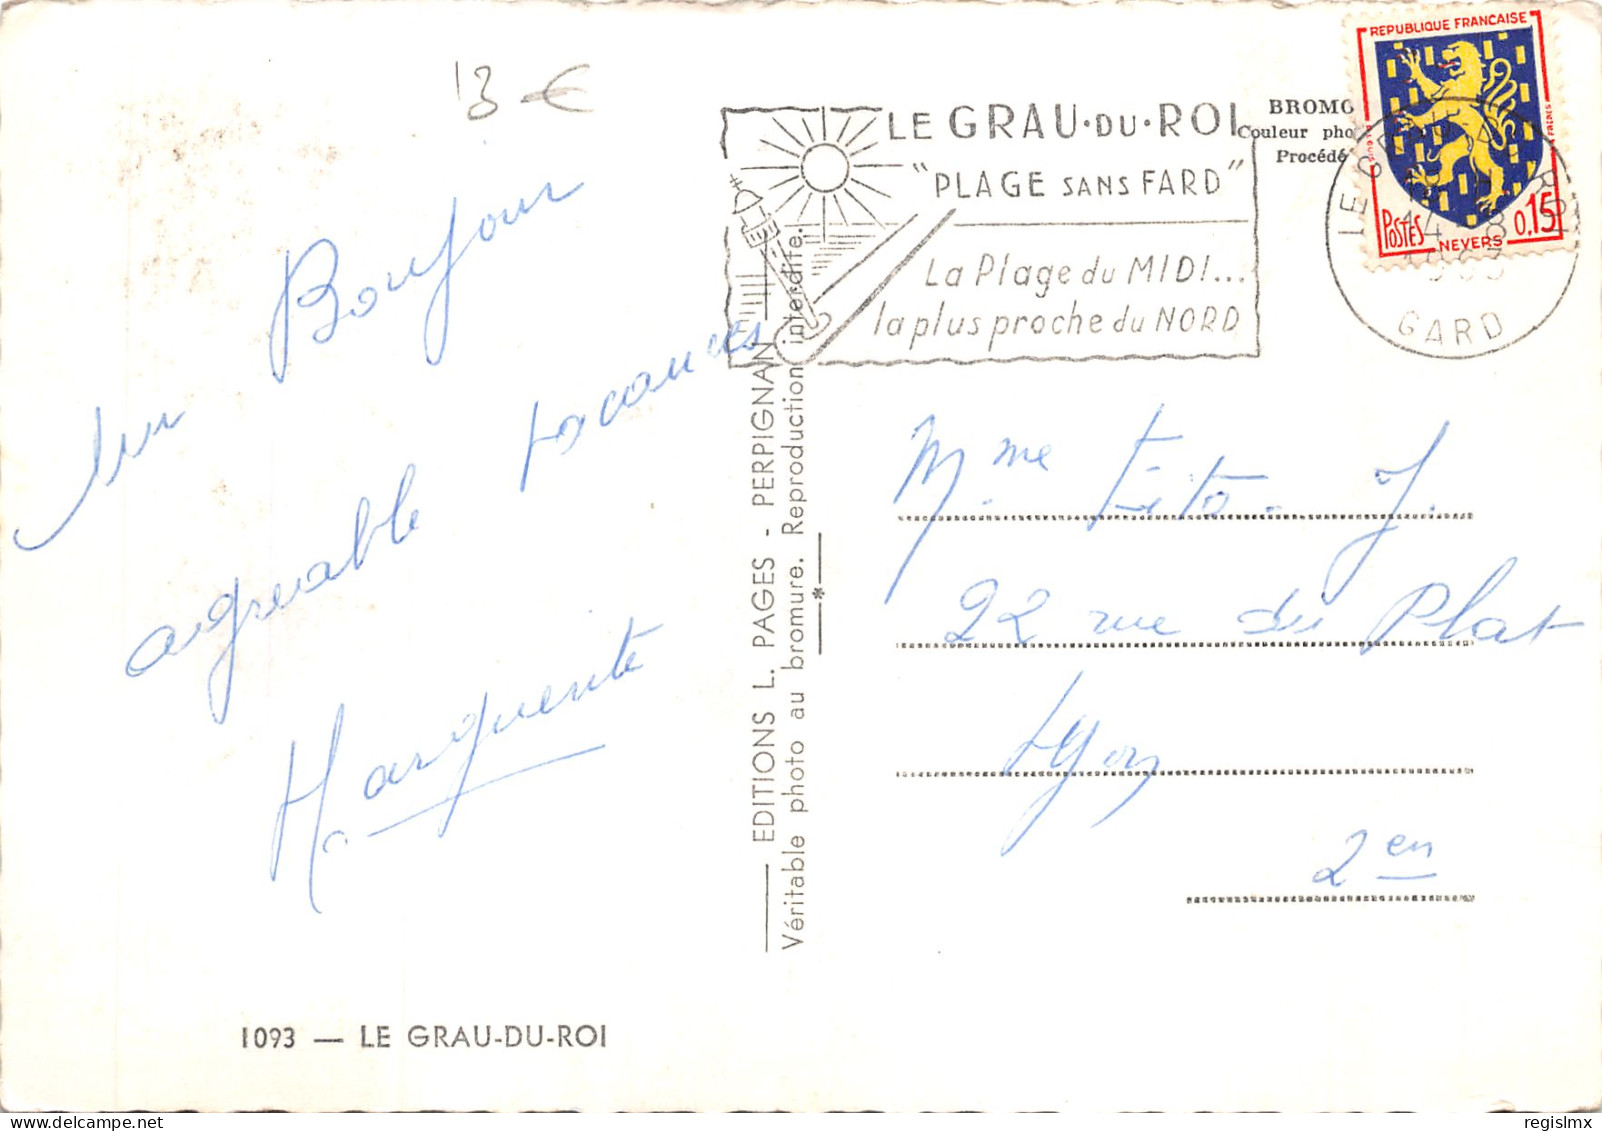 13 €
Un Bonjour
agréable vacances
Marguerite
1093 — LE GRAU-DU-ROI
EDITIONS L. PAGES - PERPIGNAN
Véritable photo au bromure. Reproduction interdite.
LE GRAU·DU·ROI
"PLAGE SANS FARD"
La Plage du MIDI...
la plus proche du NORD
BROMO
Couleur pho
Procédé
REPUBLIQUE FRANCAISE
POSTES NEVERS 0,15
GARD
Mme Tito. J.
22 rue du Plat
Lyon
2en
regislmx